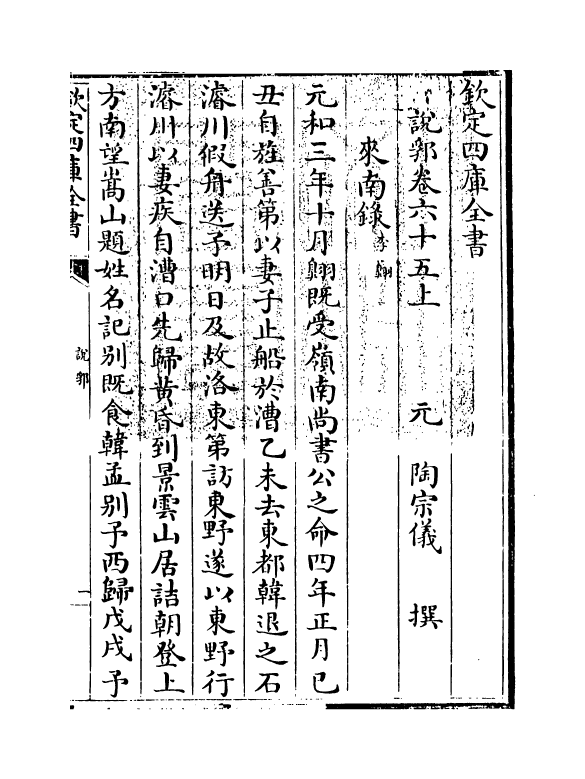 欽定四庫全書
說郛卷六十五上 元 陶宗儀 撰
來南錄 李翺
元和三年十月翺既受嶺南尚書公之命四年正月已
丑自旌善第以妻子止船於漕乙未去東都韓退之石
濬川假舟送予明日及故洛東第訪東野遂以東野行
濬川以妻疾自漕口先歸黄昏到景雲山居詰朝登上
方南望嵩山題姓名記别既食韓孟别予西歸戊戌予
欽定四庫全書
說郛
一